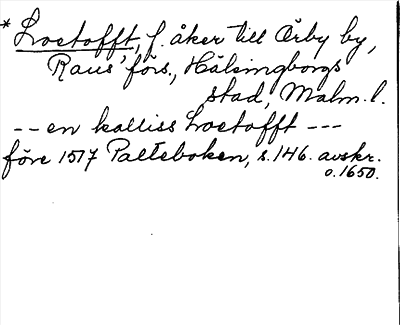 * Loetofft, f. åker till Örby by,
Raus' förs., Hälsingborgs
stad, Malm. l.
-- en kalliss Loetofft ---
före 1517 Palteboken, s. 146. avskr.
o. 1650.